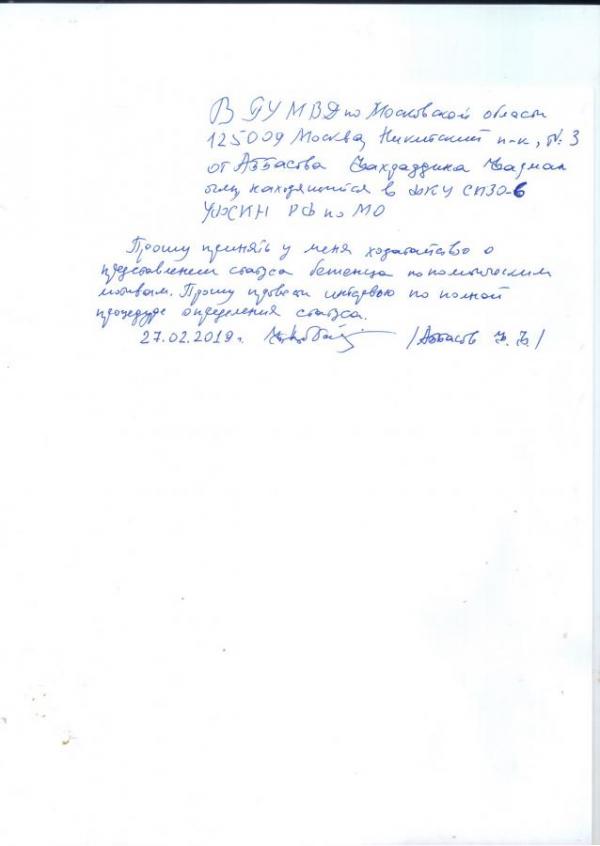 В ГУ МВД по Московской области
125009 Москва, Никитский п-к, д. 3
от Аббасова Фахраддина
находящийся в ФКУ СИЗО-6
УФСИН РФ по МО
Прошу принять у меня ходатайство о
представлении статуса беженца по политическим
мотивам. Прошу провести интервью по полной
процедуре определения статуса.
27.02.2019 г. /Аббасов Ф. Ф./